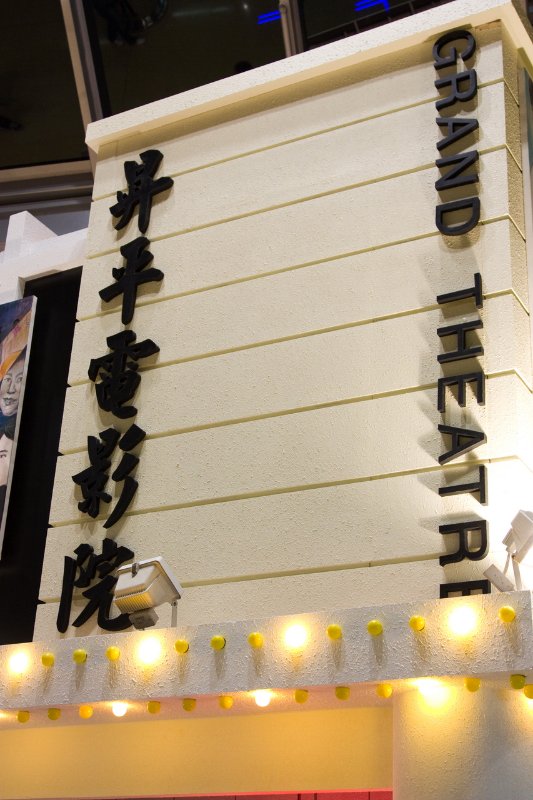 昇平電影院
GRAND THEATRE